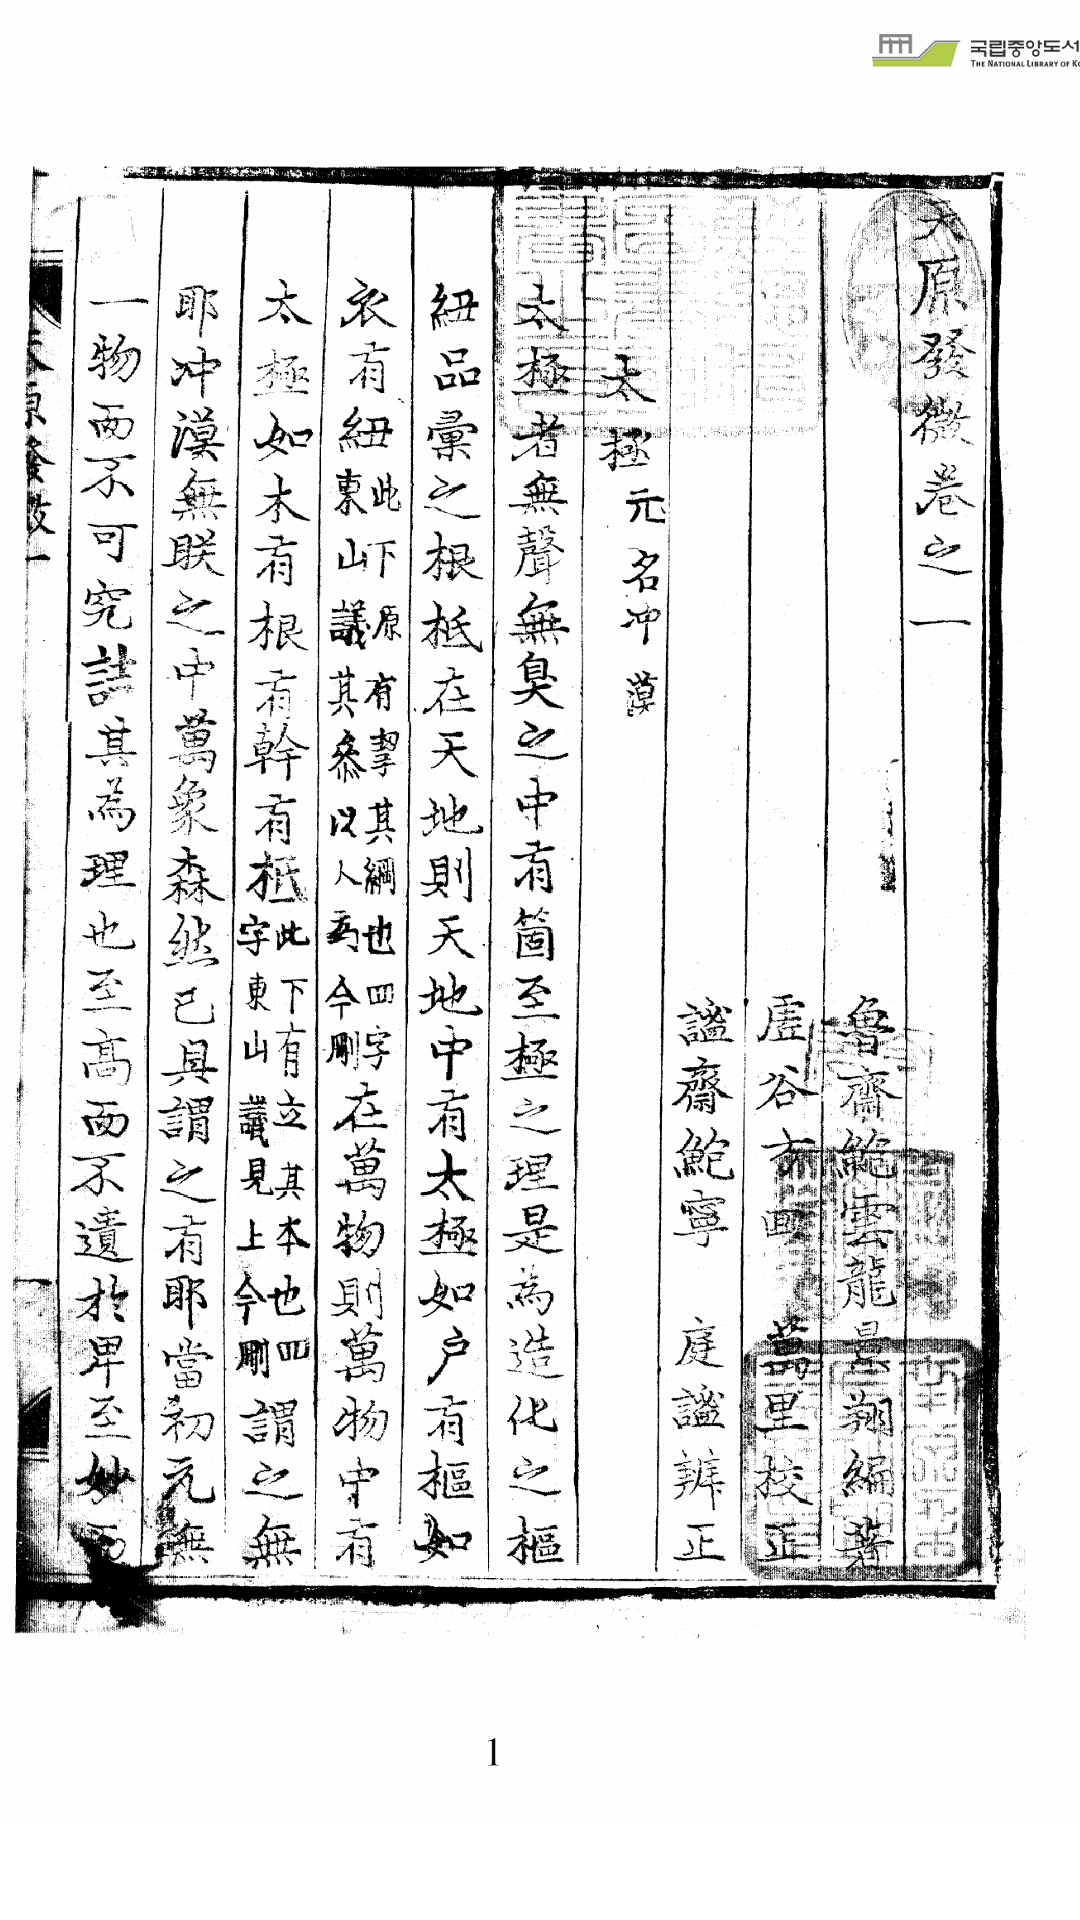 국립중앙도서
THE NATIONAL LIBRARY OF KO
天原發微卷之一
魯齋鮑雲龍景翔編著
虛谷方回萬里校正
謐齋鮑寧庭謐辨正
太極元名冲漠
太極者無聲無臭之中有箇至極之理是為造化之樞
紐品彙之根柢在天地則天地中有太極如户有樞如
衣有紐此下原有挈其綱也四字東山議其叅以人為今刪在萬物則萬物中有
太極如木有根有幹有柢此下有立其本也四字東山議見上今刪謂之無
耶冲漠無朕之中萬象森然已具謂之有耶當初元無
一物而不可究詰其為理也至高而不遺於卑至妙而
天原發微一
1